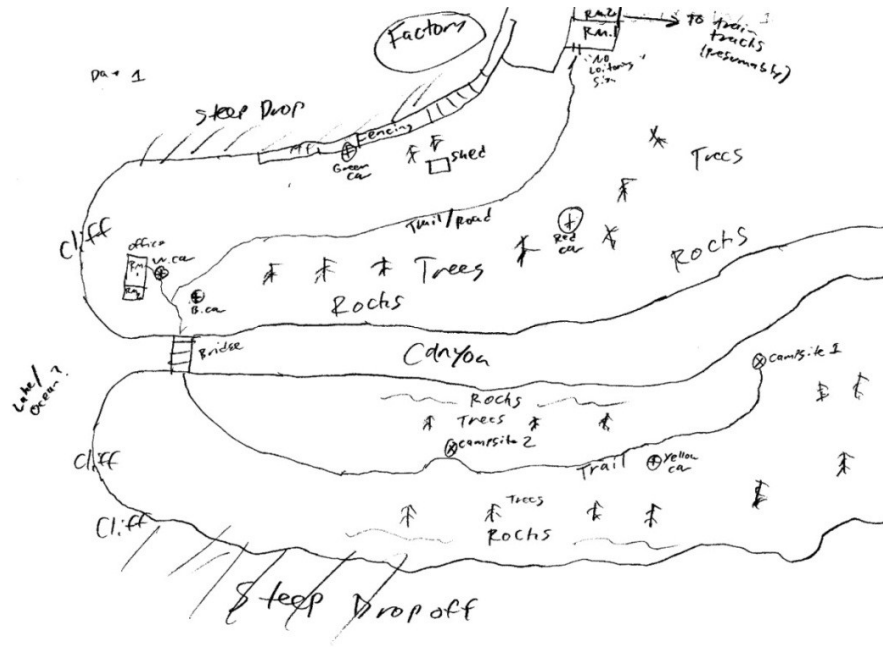 Factory
RM.2
RM.1
to train
tracks
(presumably)
"No
Loitering"
Sign
Day 1
Steep Drop
Mt.
Fencing
Green
car
shed
Trees
Trail/Road
Red
car
Rocks
Cliff
office
W. car
RM.
1
RM.
B. car
Trees
Rocks
Bridge
Canyon
Lake/
Ocean?
campsite 1
Rocks
Trees
campsite 2
Trail
Yellow
car
Cliff
Cliff
Trees
Rocks
Steep Drop off